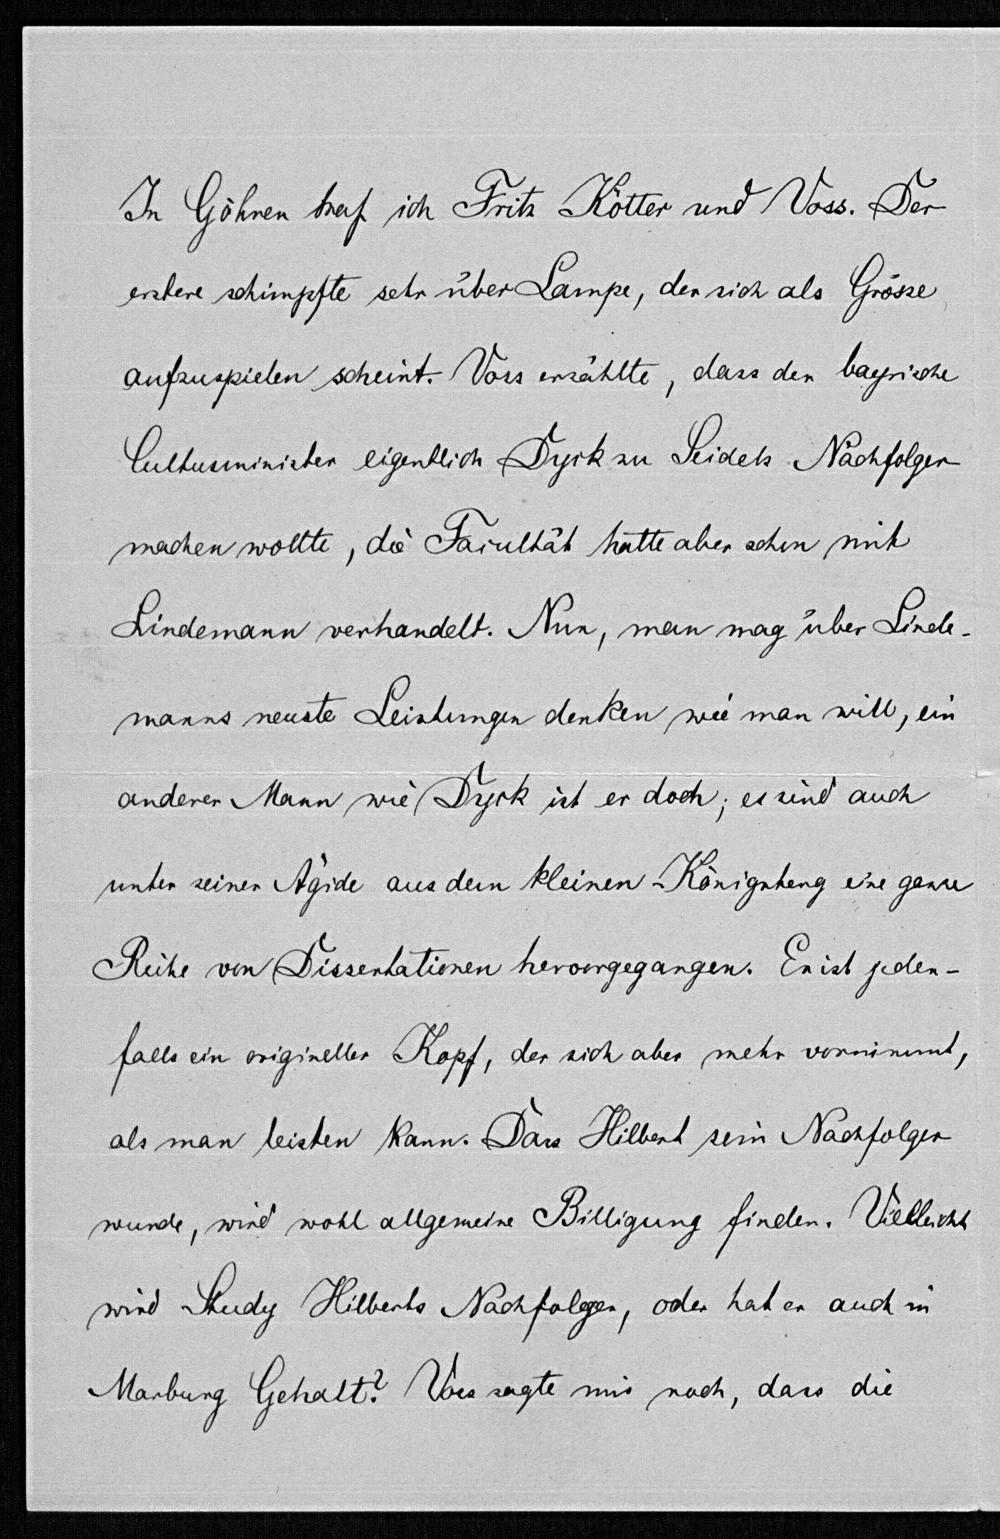 In Göhren traf ich Fritz Kötter und Voss. Der
erstere schimpfte sehr über Lampe, der sich als Grösse
aufzuspielen scheint. Voss erzählte, dass der bayrische
Cultusminister eigentlich Dyck zu Seidels Nachfolger
machen wollte, die Facultät hatte aber schon mit
Lindemann verhandelt. Nun, man mag über Linde-
manns neuste Leistungen denken wie man will, ein
anderer Mann wie Dyck ist er doch; es sind auch
unter seiner Ägide aus dem kleinen Königsberg eine ganze
Reihe von Dissertationen hervorgegangen. Er ist jeden-
falls ein origineller Kopf, der sich aber mehr vornimmt,
als man leisten kann. Dass Hilbert sein Nachfolger
wurde, wird wohl allgemeine Billigung finden. Vielleicht
wird Study Hilberts Nachfolger, oder hat er auch in
Marburg Gehalt? Voss sagte mir noch, dass die